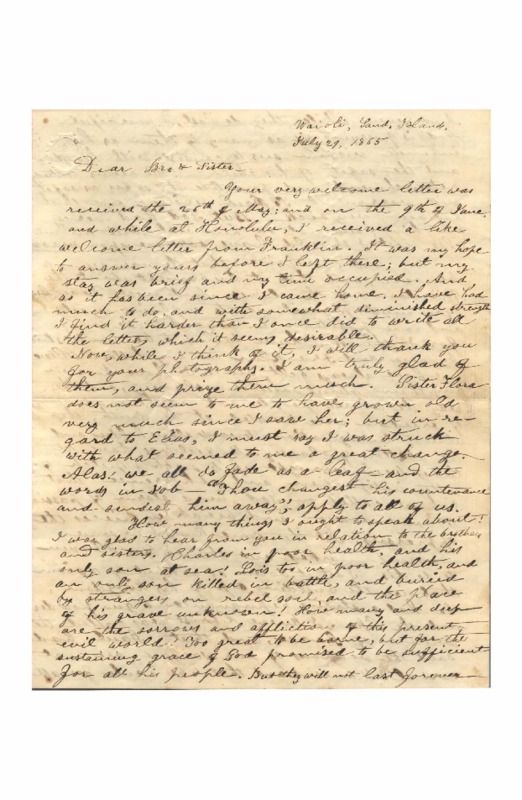 Waioli, Sand. Island.
July 29, 1865
Dear Bro & Sister—
Your very welcome letter was
received the 20th of May; and on the 9th of June,
and while at Honolulu, I received a like
welcome letter from Franklin. It was my hope
to answer yours before I left there; but my
stay was brief and my time occupied. And
as it has been since I came home. I have had
much to do, and with somewhat diminished strength
I find it harder than I once did to write all
the letters which it seems desirable.
Now, while I think of it, I will thank you
for your photographs. I am truly glad of
them, and prize them much. Sister Flora
does not seem to me to have grown old
very much since I saw her; but in re-
gard to Elias, I must say I was struck
with what seemed to me a great change.
Alas! we all do fade as a leaf—and the
words in Job—"Thou changest his countenance
and sendest him away"; apply to all of us.
How many things I ought to speak about!
I was glad to hear from you in relation to the brothers
and sisters. Charles in poor health, and his
only son at sea! Lois too in poor health, and
an only son killed in battle, and buried
by strangers on rebel soil and the place
of his grave unknown! How many and deep
are the sorrows and afflictions of this present
evil world! Too great to be borne, but for the
sustaining grace of God promised to be sufficient
for all his people. But they will not last forever—